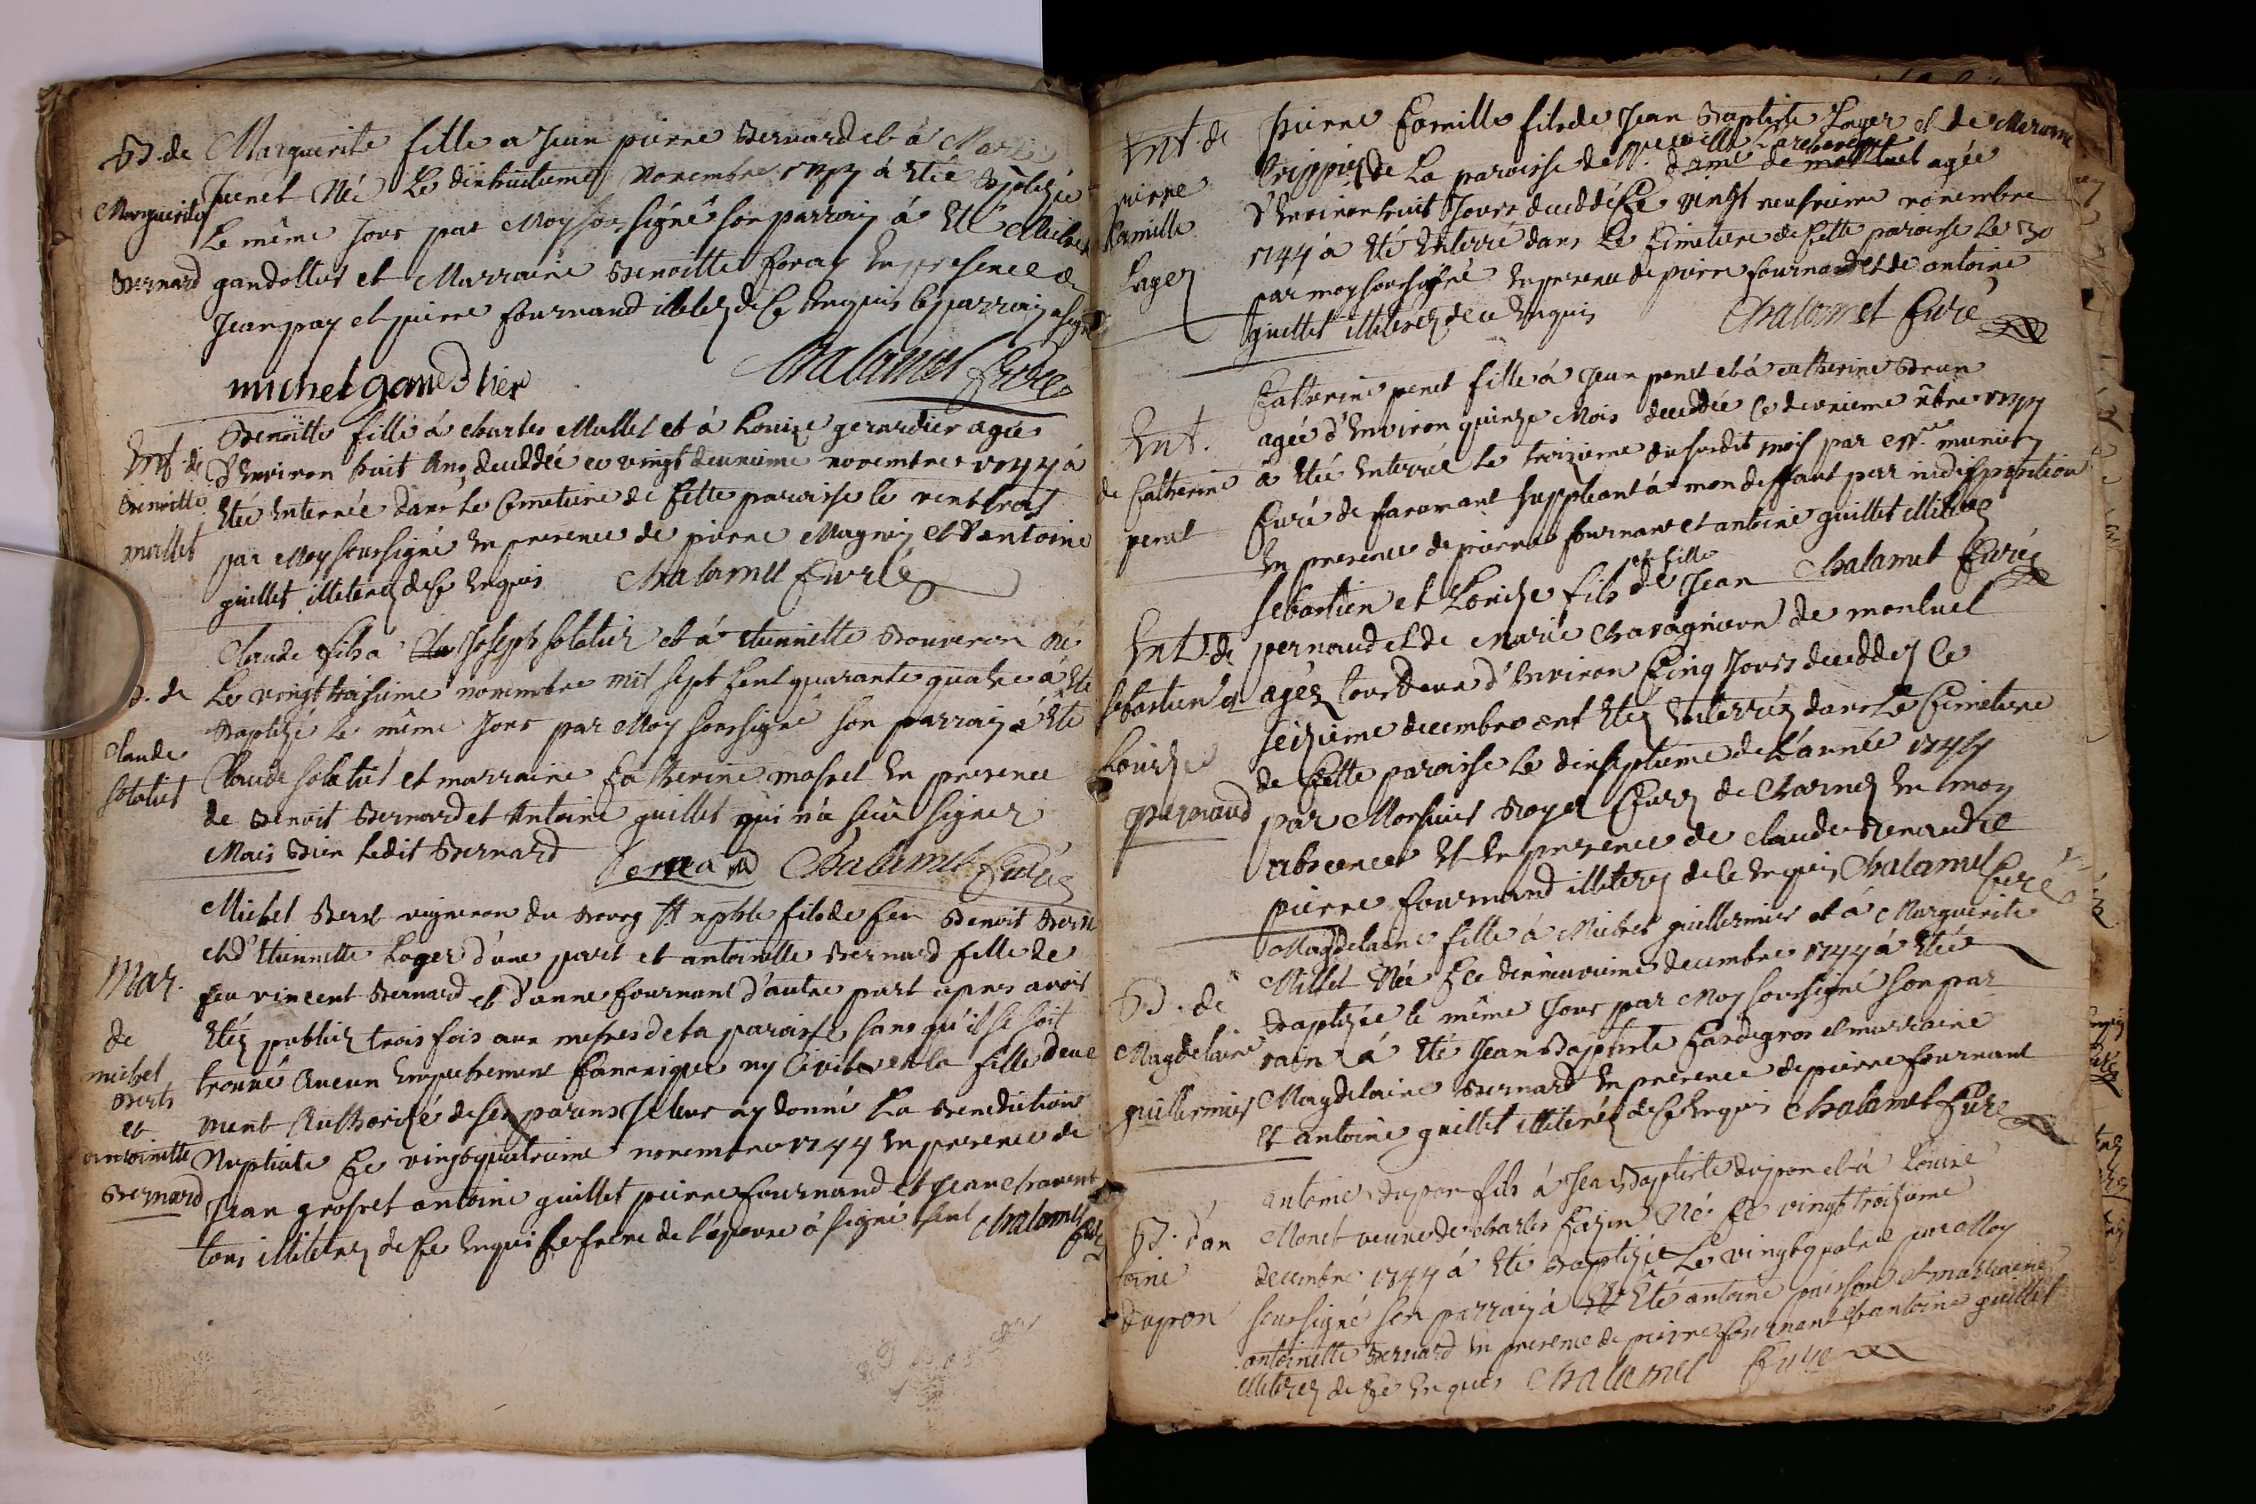 B. de
Marguerite
Bernard
Marguerite fille a Jean pierre Bernard et à Marie
Juenet Née Le dixhuitieme Novembre 1744 à Eté Baptizée
Le même Jour par Moy sousigné son parrain à Eté Michel
gandollier et Marraine Benoitte foray En presence de
Jean pay et pierre fournand illiterez de ce Enquis le parrain a signé
michel gandthier Chalamel Curé
Ent. de
Benoitte
mallet
Benoitte fille à charles Mallet et à Louize gerardier agée
d'Environ huit Ans deceddée ce vingt deuxieme novembre 1744 à
Eté Enterrée dans le Cimetiere de Cette paroisse le vent trois
par Moy soussigné En presence de pierre Magnin et d'antoine
guillet illiterez de Ce Enquis Chalamel Curé
B. de
Claude
solatier
Claude fils a Joseph solatier et à etiennette Bouveron Né
Le vingt troisieme novembre mil sept Cent quarante quatre à Eté
Baptizé Le même Jour par Moy soussigné son parrain à Eté
Claude solatiel et marraine Catherine mosnel En presence
de Benoit Bernard et Antoine guillet qui n'a sceu signer
Mais Bien ledit Bernard Bernard Chalamel Curé
Mar.
de
michel
Berth
et
antoinette
Bernard
Michel Bert vigneron du Bourg fils de feu Benoit Bern
et d'Etiennette Loger d'une part et antoinette Bernard fille de
feu vincent Bernard et d'anne fournant d'autre part apres avoir
Etéz publiéz trois fois aux messes de la paroisse sans qu'il se soit
trouvé Aucun Empechement Canonique ny Civile et la fille deue
ment Authorisé de ses parans Je leur ay donné La Benediction
Nuptiale Ce vingtquatrieme novembre 1744 En presence de
Jean grosset antoine guillet pierre fournand et Jean
tous illiterez de Ce Enquis Le frere de l'epouse à signé seul Chalamel Curé
Ent. de
pierre
Camille
Lager
pierre Camille fils de Jean Baptiste Lager et de
trippier de La paroisse de dame de montluel agée
d'Environ huit Jours deceddé Ce vingt neufvieme novembre
1744 à Eté Enterré dans Le Cimetiere de Cette paroisse Le 30
par moy soussigné En presence de pierre fournand et de antoine
guillet illiterez de ce Enquis Chalamel Curé
Ent.
de Catherine
penet
Catherine penet fille à Jean penet et à catherine Brun
agée d'Environ quinze Mois deceddée Ce deuxieme Xbre 1744
à Eté Enterrée le troizieme du susdit mois par
Curé de faramant suppleant à mon deffaut par indisposition
En presence de pierre fournand et antoine guillet illiterez
Chalamel Curé
Ent. de
sebastien et
Louize
pernaud
sebastien et Louize fils et fille de Jean
pernaud et de Marie Charagnieon de monluel
agéz tous Deux d'Environ Cinq Jours deceddez Ce
seizieme decembre ont Etéz Enterréz dans Le Cimetiere
de Cette paroisse Le dixseptieme de L'année 1744
par Monsieur Royer Curé de Charnoz En mon
abscence Et En presence de Claude Renaud et
pierre fournand illiterez de Ce Enquis Chalamel Curé
B. de
Magdelaine
guillermier
Magdelaine fille à Michel guillermier et à Marguerite
Millet Née Ce dixneuvieme decembre 1744 à Eté
Baptizée le même Jour par Moy soussigné son par
rain à Eté Jean Baptiste Cardegros et marraine
Magdelaine Bernard En presence de pierre fournant
Et antoine guillet illiterez de Ce Enquis Chalamel Curé
B. d'an
toine
dupon
antoine dupon fils à Jean Baptiste dupon et à Louise
Monet veuve de charles Cazen Né Ce vingt troizieme
decembre 1744 à Eté Baptizé Le vingtquatre par Moy
soussigné son parrain à Eté antoine poisson et marraine
antoinette Bernard En presence de pierre fournant et antoine guillet
illiterez de Ce Enquis Chalamel Curé